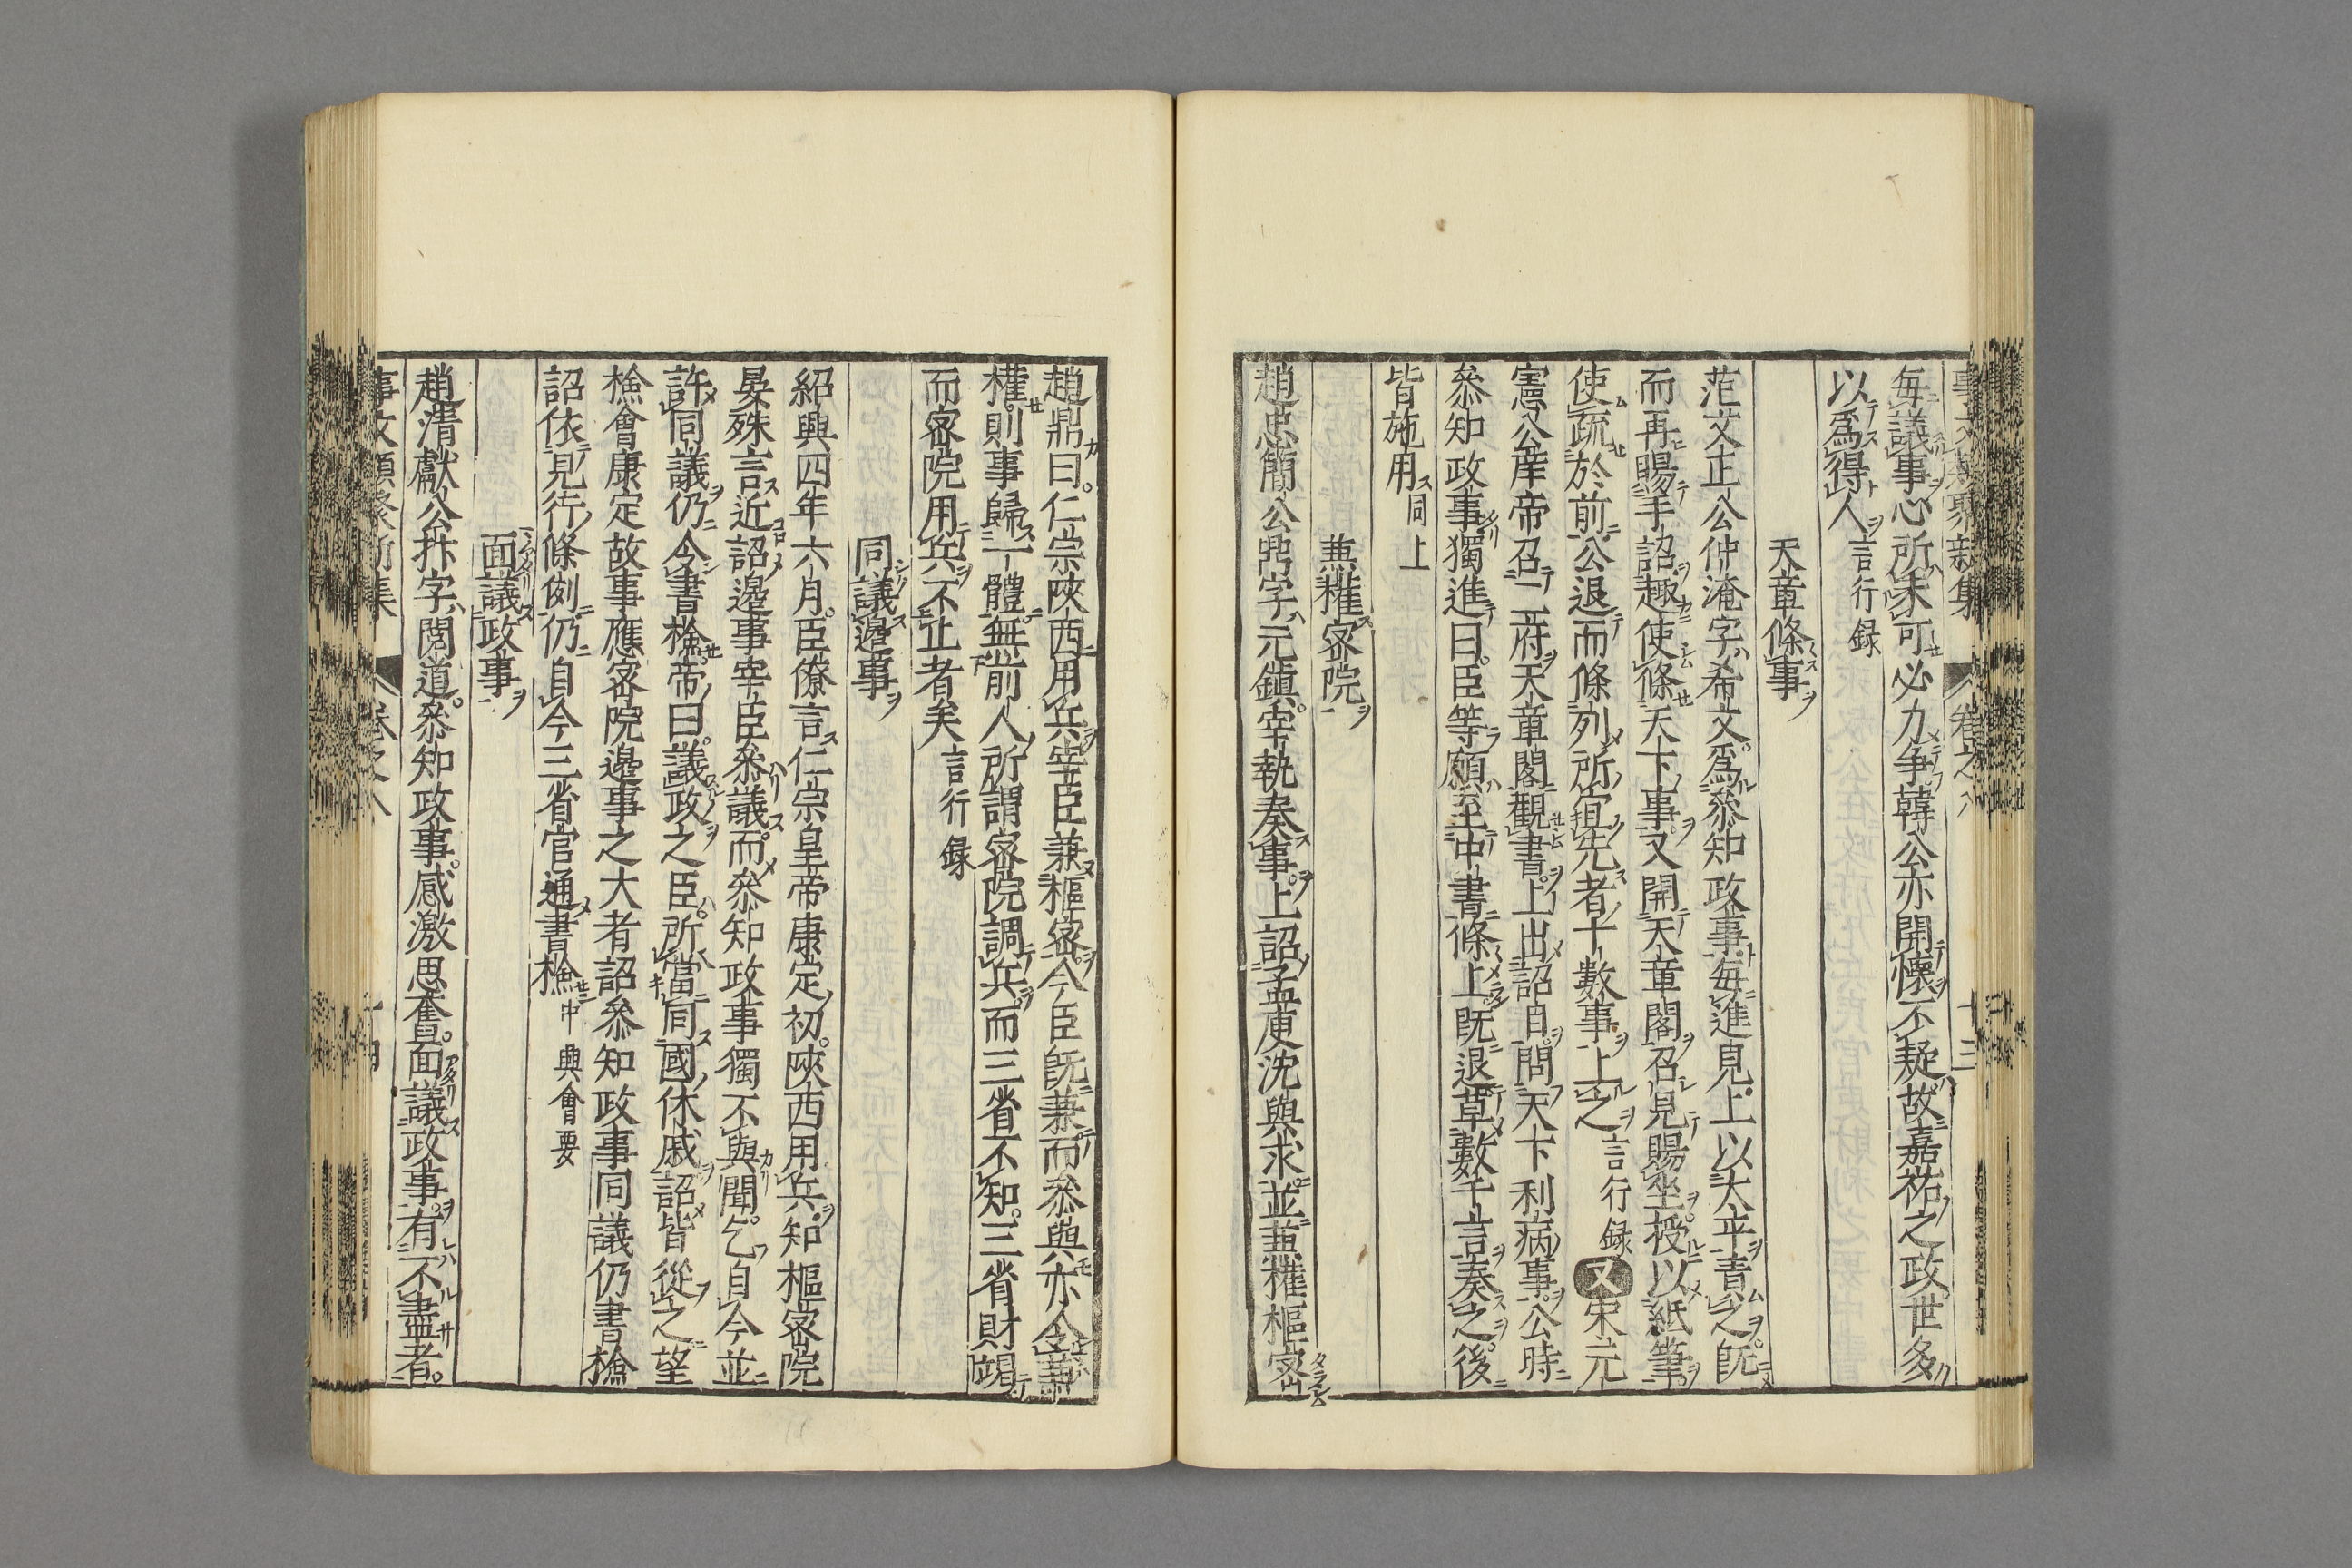 事文類聚新集 卷之八 十三
每議事心所未可必力争韓公亦開懷不疑故嘉祐之政世多
以爲得人言行録
天章條事
范文正公仲淹字希文爲叅知政事每進見上以太平責之既
而再賜手詔趣使條天下事又開天章閣召見賜坐授以紙筆
使疏於前公退而條列所宜先者十數事上之言行録又宋元
憲公庠帝召二府天章閣觀書上出詔自問天下利病事公時
叅知政事獨進曰臣等願至中書條上既退草數千言奏之後
皆施用同上
兼權宻院
趙忠簡公鼎字元鎮宰執奏事上詔孟庾沈與求並兼權樞宻
趙鼎曰仁宗陝西用兵宰臣兼樞宻今臣既兼而叅與亦令兼
權則事歸一體無前人所謂宻院調兵而三省不知三省財竭
而宻院用兵不止者矣言行録
同議邊事
紹興四年六月臣僚言仁宗皇帝康定初陝西用兵知樞宻院
晏殊言近詔邊事宰臣叅議而叅知政事獨不與聞乞自今並
許同議仍令書檢帝曰議政之臣所當同國休戚詔皆從之望
檢會康定故事應宻院邊事之大者詔叅知政事同議仍書檢
詔依見行條例仍自今三省官通書檢中興會要
面議政事
趙清獻公抃字閲道叅知政事感激思奮面議政事有不盡者
事文類聚新集 卷之八